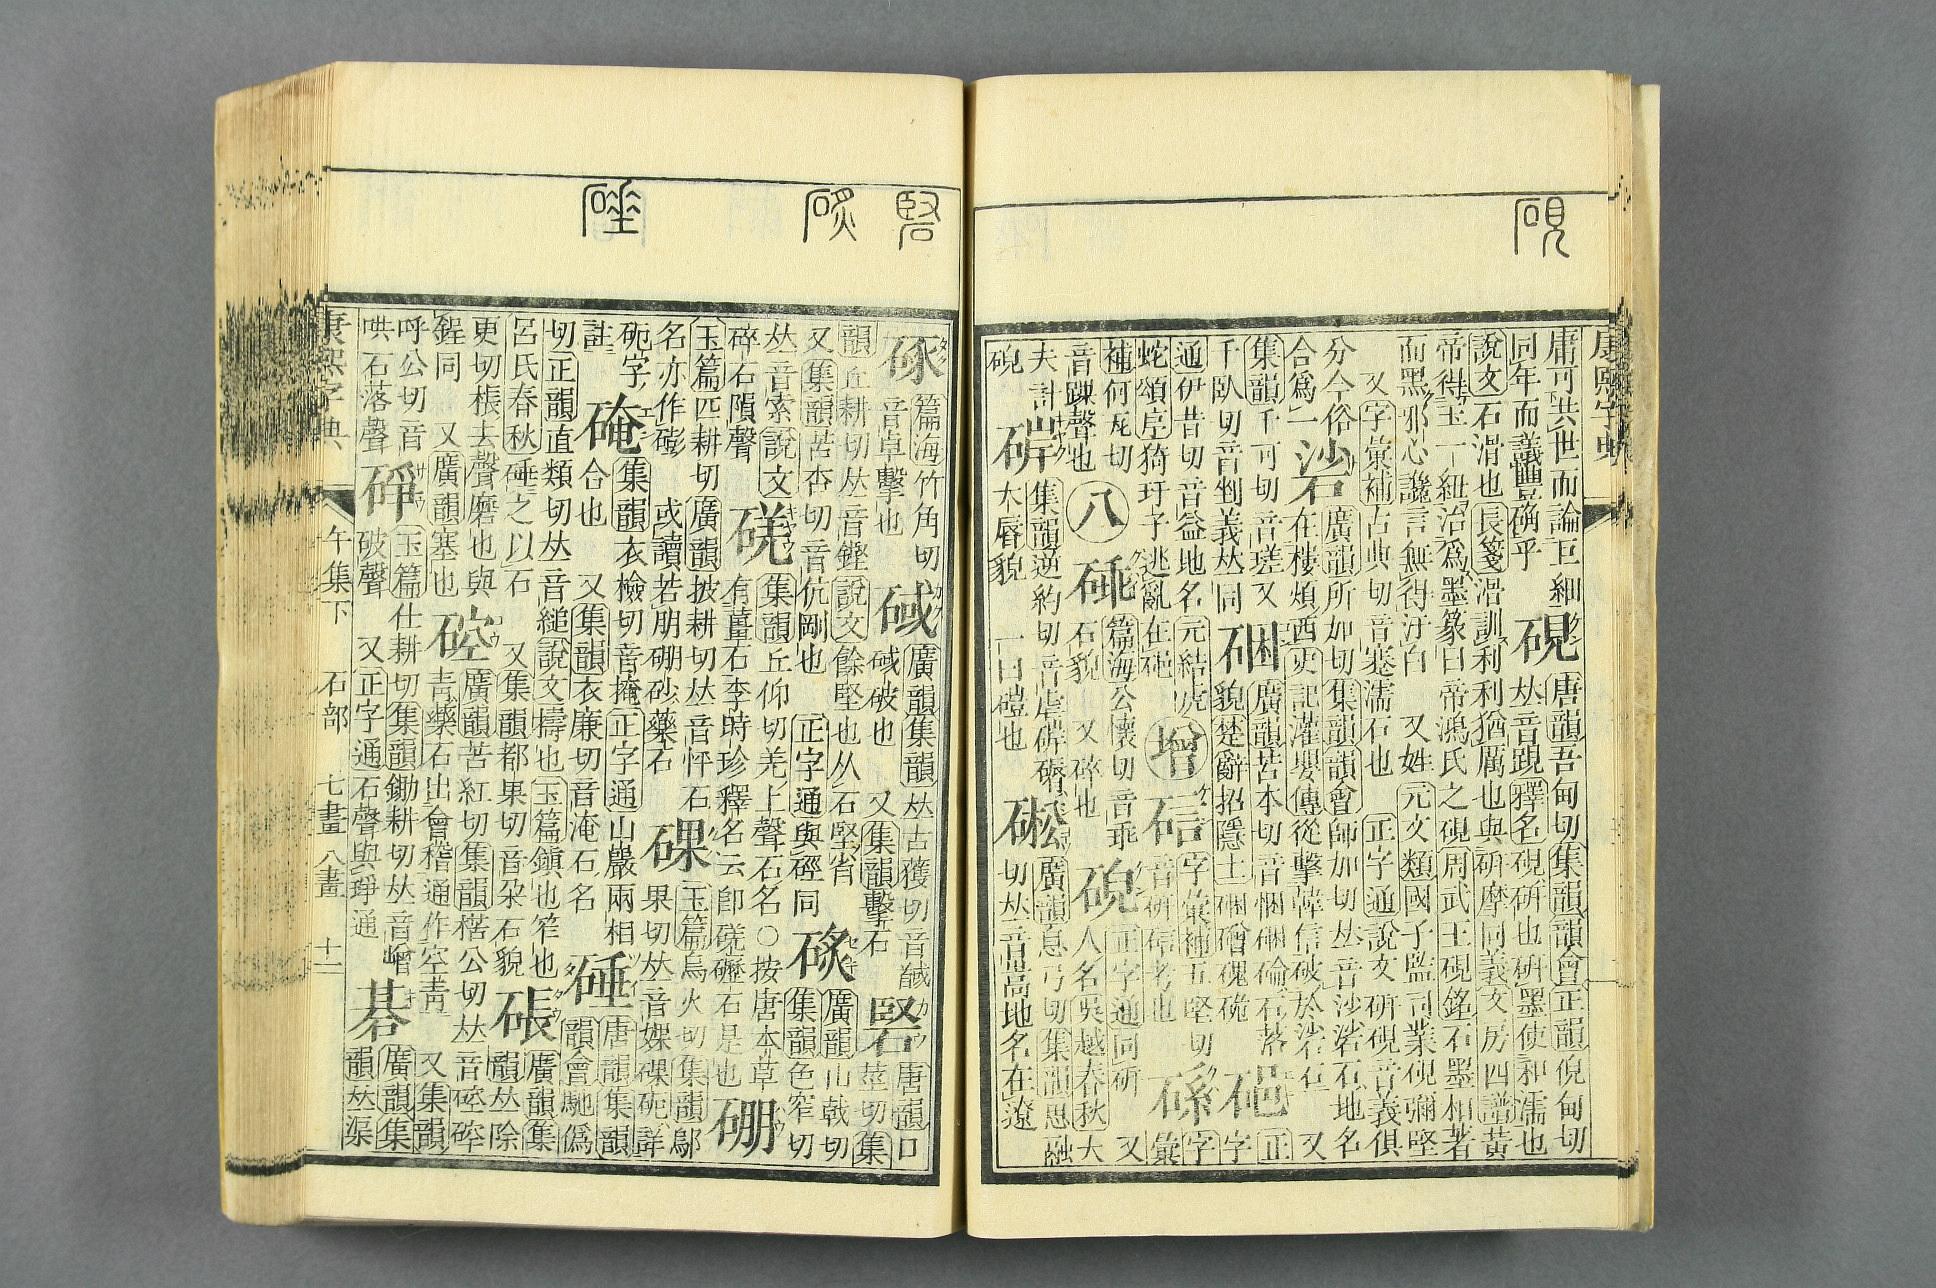 康熙字典
庸可共世而論巨細硯唐韻吾甸切集韻韻會正韻倪甸切
同年而議豐确乎𠀤音趼釋名硯研也硏墨使和濡也
說文石滑也長箋滑訓利利猶厲也與硏摩同義文房四譜黃
帝得玉一紐治爲墨篆曰帝鴻氏之硯周武王硯銘石墨相著
而黑邪心讒言無得汙白又姓元文類國子監司業硯彌堅
又字彙補古典切音蹇濡石也正字通說文硏硯音義俱
分今俗廣韻所加切集韻韻會師加切𠀤音沙硰石地名
合爲一硰在樓煩西史記灌嬰傳從擊韓信破於硰石又
集韻千可切音瑳又廣韻苦本切音悃硱碖石落正
千臥切音剉義𠀤同硱貌楚辭招隱士硱磳磈硊砨字
通伊昔切音益地名元結虎增硈字彙補五堅切
蛇頌序猗玗子逃亂在砨音硏信考也硺字彙
補何瓦切篇海公懷切音乖正字通同硏又
音踝聲也八硾石貌又碎也硯人名吳越春秋大
夫計集韻逆約切音虐硸磍廣韻息弓切集韻思融
硯硸木唇貌一曰磑也硹切𠀤音嵩地名在遼
硯
硻
硺
硾
硺篇海竹角切廣韻集韻𠀤古獲切音馘唐韻口
音卓擊也硴硴破也又集韻擊石硻莖切集
韻丘耕切𠀤音鏗說文餘堅也从石堅省廣韻山戟切
又集韻苦杏切音伉剛也正字通與硜同集韻色窄切
𠀤音索說文集韻丘仰切羌上聲石名○按唐本草
碎石隕聲硭有薑石李時珍釋名云卽硭礓石是也硼
玉篇匹耕切廣韻披耕切𠀤音怦石玉篇烏火切集韻鄔
名亦作磞或讀若朋硼砂藥石碨果切𠀤音婐碨砈詳
砈字集韻衣檢切音掩正字通山巖兩相唐韻集韻
註硽合也又集韻衣廉切音淹石名硾韻會馳僞
切正韻直類切𠀤音縋說文擣也玉篇鎭也笮也廣韻集
呂氏春秋硾之以石又集韻都果切音朶石貌硾韻𠀤除
更切棖去聲磨也與廣韻苦紅切集韻枯公切𠀤音硿硿
鋥同又廣韻塞也硿靑藥石出會稽通作空靑又集韻
呼公切音玉篇仕耕切集韻鋤耕切𠀤音噌廣韻集
哄石落聲硑破聲又正字通石聲與琤通碁韻𠀤渠
康熙字典
午集下
石部
七畫
八畫
十二